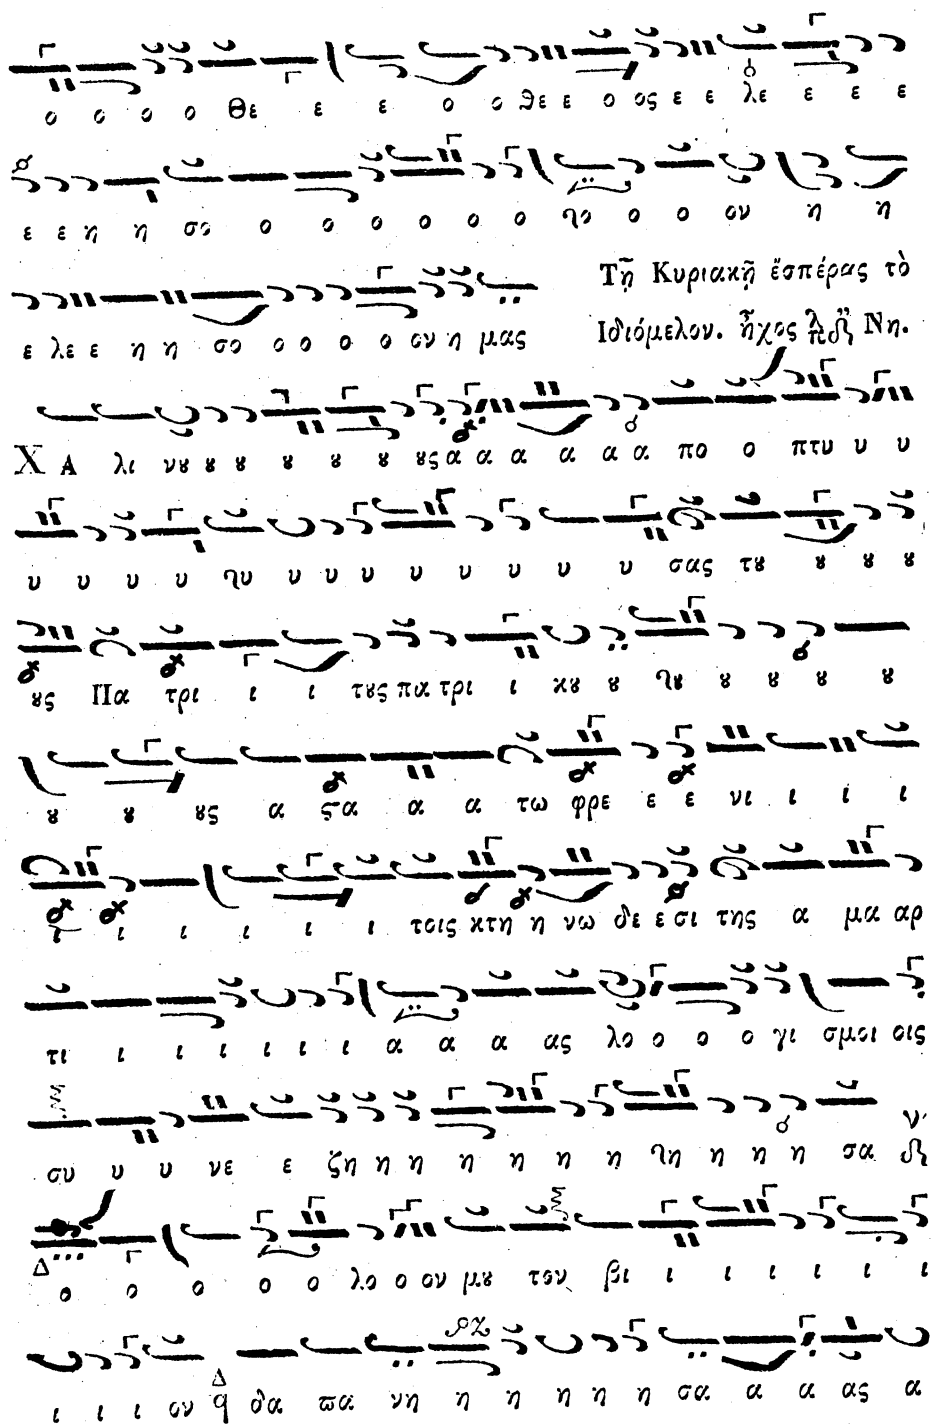 ο ο ο ο Θε ε ε ο ο θε ε ο ος ε ε λε ε ε ε
ε ε η η σο ο ο ο ο ο ο ο ο ον η η
Τῇ Κυριακῇ ἑσπέρας τὸ
ε λε ε η η σο ο ο ο ο ον η μας
Ἰδιόμελον. ἦχος Νη.
ΧΑ λι νȣ ȣ ȣ ȣ ȣ ȣ ȣς α α α α α α πο ο πτυ υ υ
υ υ υ υ υ υ υ υ υ υ υ υ σας τȣ ȣ ȣ ȣ
ȣς Πα τρι ι ι τȣς πα τρι ι κȣ ȣ ȣ ȣ ȣ ȣ ȣ
ȣ ȣ ȣς α ϛα α α τω φρε ε ε νι ι ι ι
ι ι ι ι ι ι τοις κτη η νω δε ε σι της α μα αρ
τι ι ι ι ι ι ι α α α ας λο ο ο ο γι σμοι οις
συ υ υ νε ε ζη η η η η η η η η η η σα
ο ο ο ο ο λο ο ον μȣ τον βι ι ι ι ι ι ι
ι ι ι ον δα πα νη η η η η η σα α α ας α